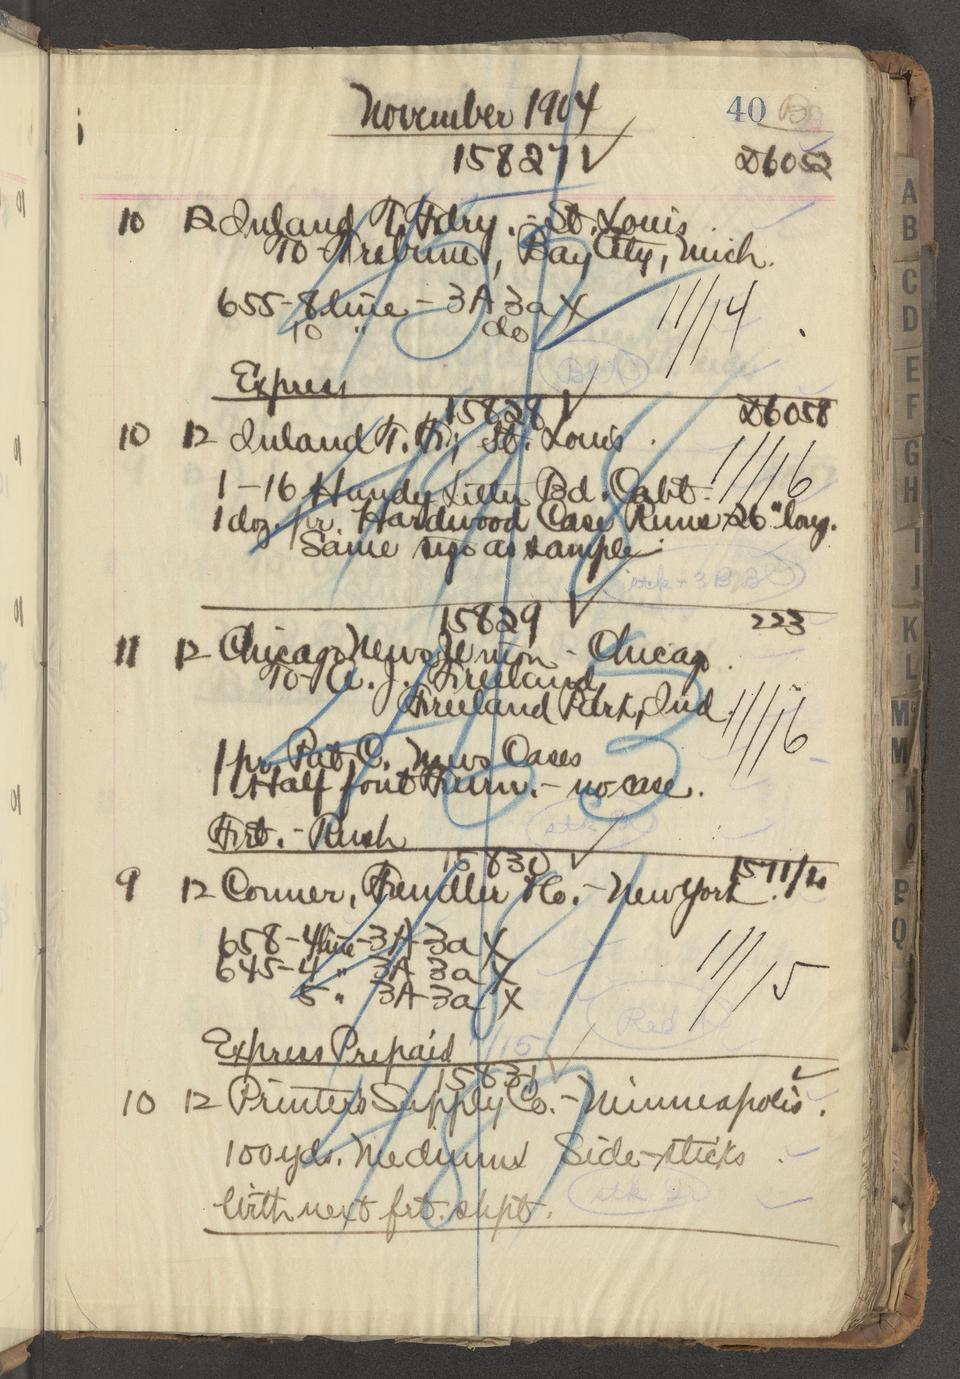 November 1904
40
15827 ✓ D6052
10 12 Inland T. Fdry. - St. Louis
To Tribune, Bay City, Mich.
655-8 line - 3A 3a X
10 " do
11/14
Express
15828 ✓ D6058
10 12 Inland T. F., St. Louis.
1-16 Handy Letter Bd. Cabt. 11/16
1 doz. pr. Hardwood Case Runs 26" long.
Same as sample
stk + 3 B
15829 ✓ 223
11 12 Chicago News Union - Chicago.
To A. J. Freeland
Freeland Park, Ind.
11/16
1 pr. Pat. C. News Cases
Half font - no case.
stk
Frt. - Rush
15830 ✓ 1571/10
9 12 Conner, Fendler & Co. - New York.
658-4 line - 3A 3a X
645-4 " 3A 3a X
5 " 3A 3a X
11/15
Red
Express Prepaid
15831 ✓
10 12 Printers Supply Co. - Minneapolis.
100 yds. Medium Side-sticks
stk
With next frt. shpt.
A
B
C
D
E
F
G
H
I
J
K
L
M
M
N
O
P
Q